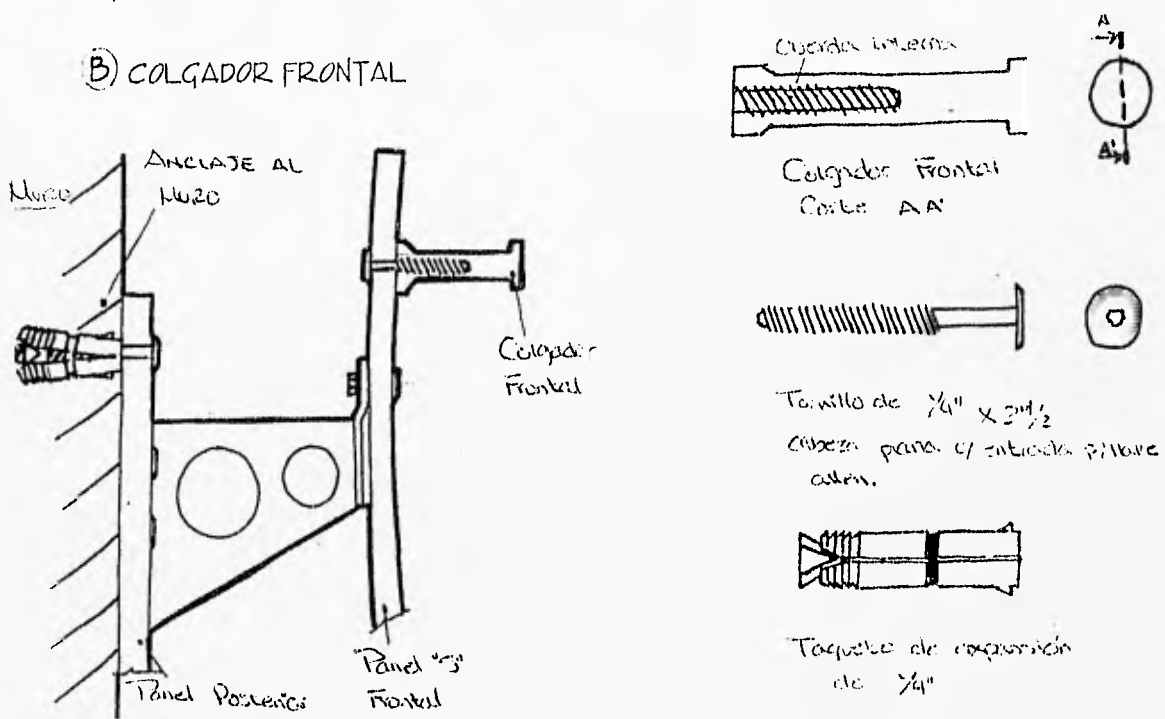 B) COLGADOR FRONTAL
Muro
ANCLAJE AL
MURO
Colgador
Frontal
Panel Posterior
Panel "3"
Frontal
cuerda interna
A
A'
Colgador Frontal
Corte AA'
Tornillo de 1/4" x 2"1/2
cabeza plana c/ entrada p/llave
allen.
Taquete de expansión
de 1/4"